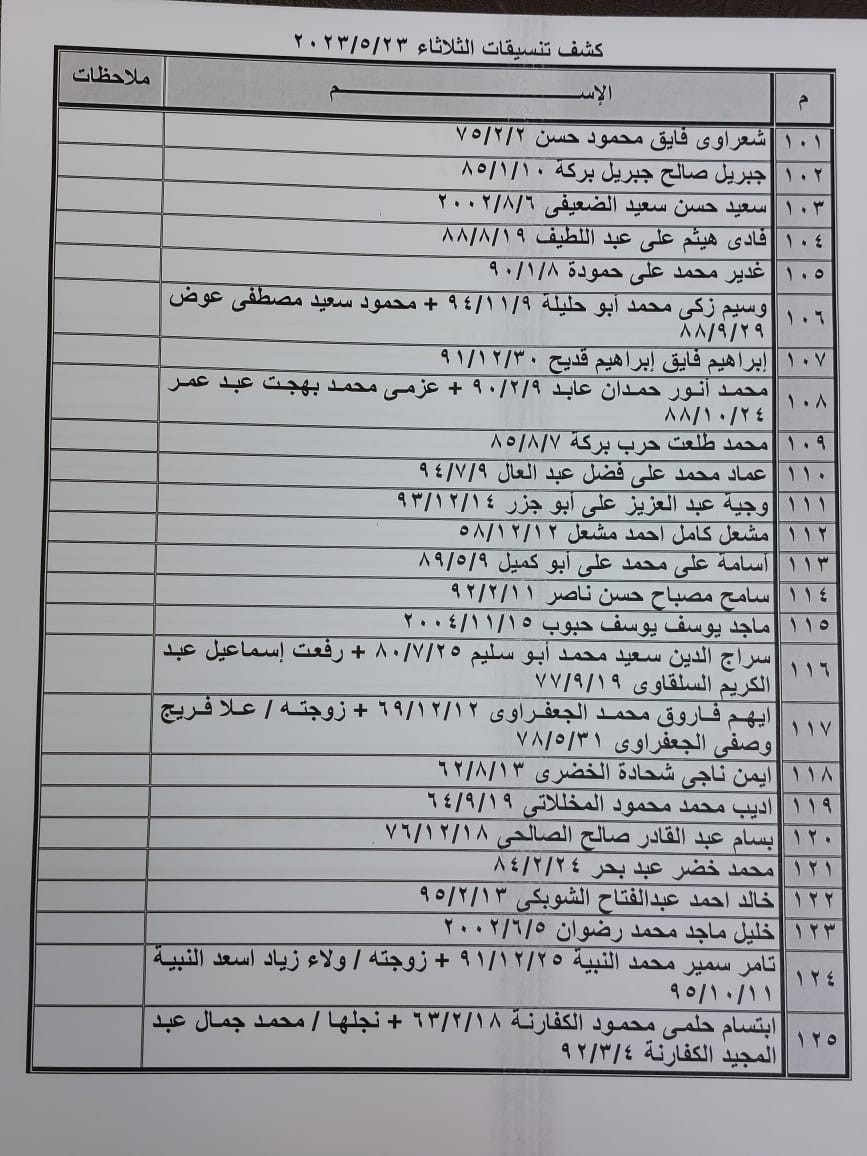 كشف تنسيقات الثلاثاء ٢٠٢٣/٥/٢٣
م الإســـــم ملاحظات
١٠١ شعراوى فايق محمود حسن ٧٥/٢/٢
١٠٢ جبريل صالح جبريل بركة ٨٥/١/١٠
١٠٣ سعيد حسن سعيد الضعيفى ٢٠٠٢/٨/٦
١٠٤ فادى هيثم على عبد اللطيف ٨٨/٨/١٩
١٠٥ غدير محمد على حمودة ٩٠/١/٨
١٠٦ وسيم زكى محمد أبو حليلة ٩٤/١١/٩ + محمود سعيد مصطفى عوض
٨٨/٩/٢٩
١٠٧ إبراهيم فايق إبراهيم قديح ٩١/١٢/٣٠
١٠٨ محمد أنور حمدان عابد ٩٠/٢/٩ + عزمى محمد بهجت عبد عمر
٨٨/١٠/٢٤
١٠٩ محمد طلعت حرب بركة ٨٥/٨/٧
١١٠ عماد محمد على فضل عبد العال ٩٤/٧/٩
١١١ وجية عبد العزيز على أبو جزر ٩٣/١٢/١٤
١١٢ مشعل كامل احمد مشعل ٥٨/١٢/١٢
١١٣ أسامة على محمد على أبو كميل ٨٩/٥/٩
١١٤ سامح مصباح حسن ناصر ٩٢/٢/١١
١١٥ ماجد يوسف يوسف حبوب ٢٠٠٤/١١/١٥
١١٦ سراج الدين سعيد محمد أبو سليم ٨٠/٧/٢٥ + رفعت إسماعيل عبد
الكريم السلقاوى ٧٧/٩/١٩
١١٧ ايهم فاروق محمد الجعفراوى ٦٩/١٢/١٢ + زوجته / علا فريج
وصفى الجعفراوى ٧٨/٥/٣١
١١٨ ايمن ناجى شحادة الخضرى ٦٢/٨/١٣
١١٩ اديب محمد محمود المخللاتى ٦٤/٩/١٩
١٢٠ بسام عبد القادر صالح الصالحى ٧٦/١٢/١٨
١٢١ محمد خضر عبد بحر ٨٤/٢/٢٤
١٢٢ خالد احمد عبدالفتاح الشوبكى ٩٥/٢/١٣
١٢٣ خليل ماجد محمد رضوان ٢٠٠٢/٦/٥
١٢٤ تامر سمير محمد النبية ٩١/١٢/٢٥ + زوجته / ولاء زياد اسعد النبية
٩٥/١٠/١١
١٢٥ ابتسام حلمى محمود الكفارنة ٦٣/٢/١٨ + نجلها / محمد جمال عبد
المجيد الكفارنة ٩٢/٣/٤